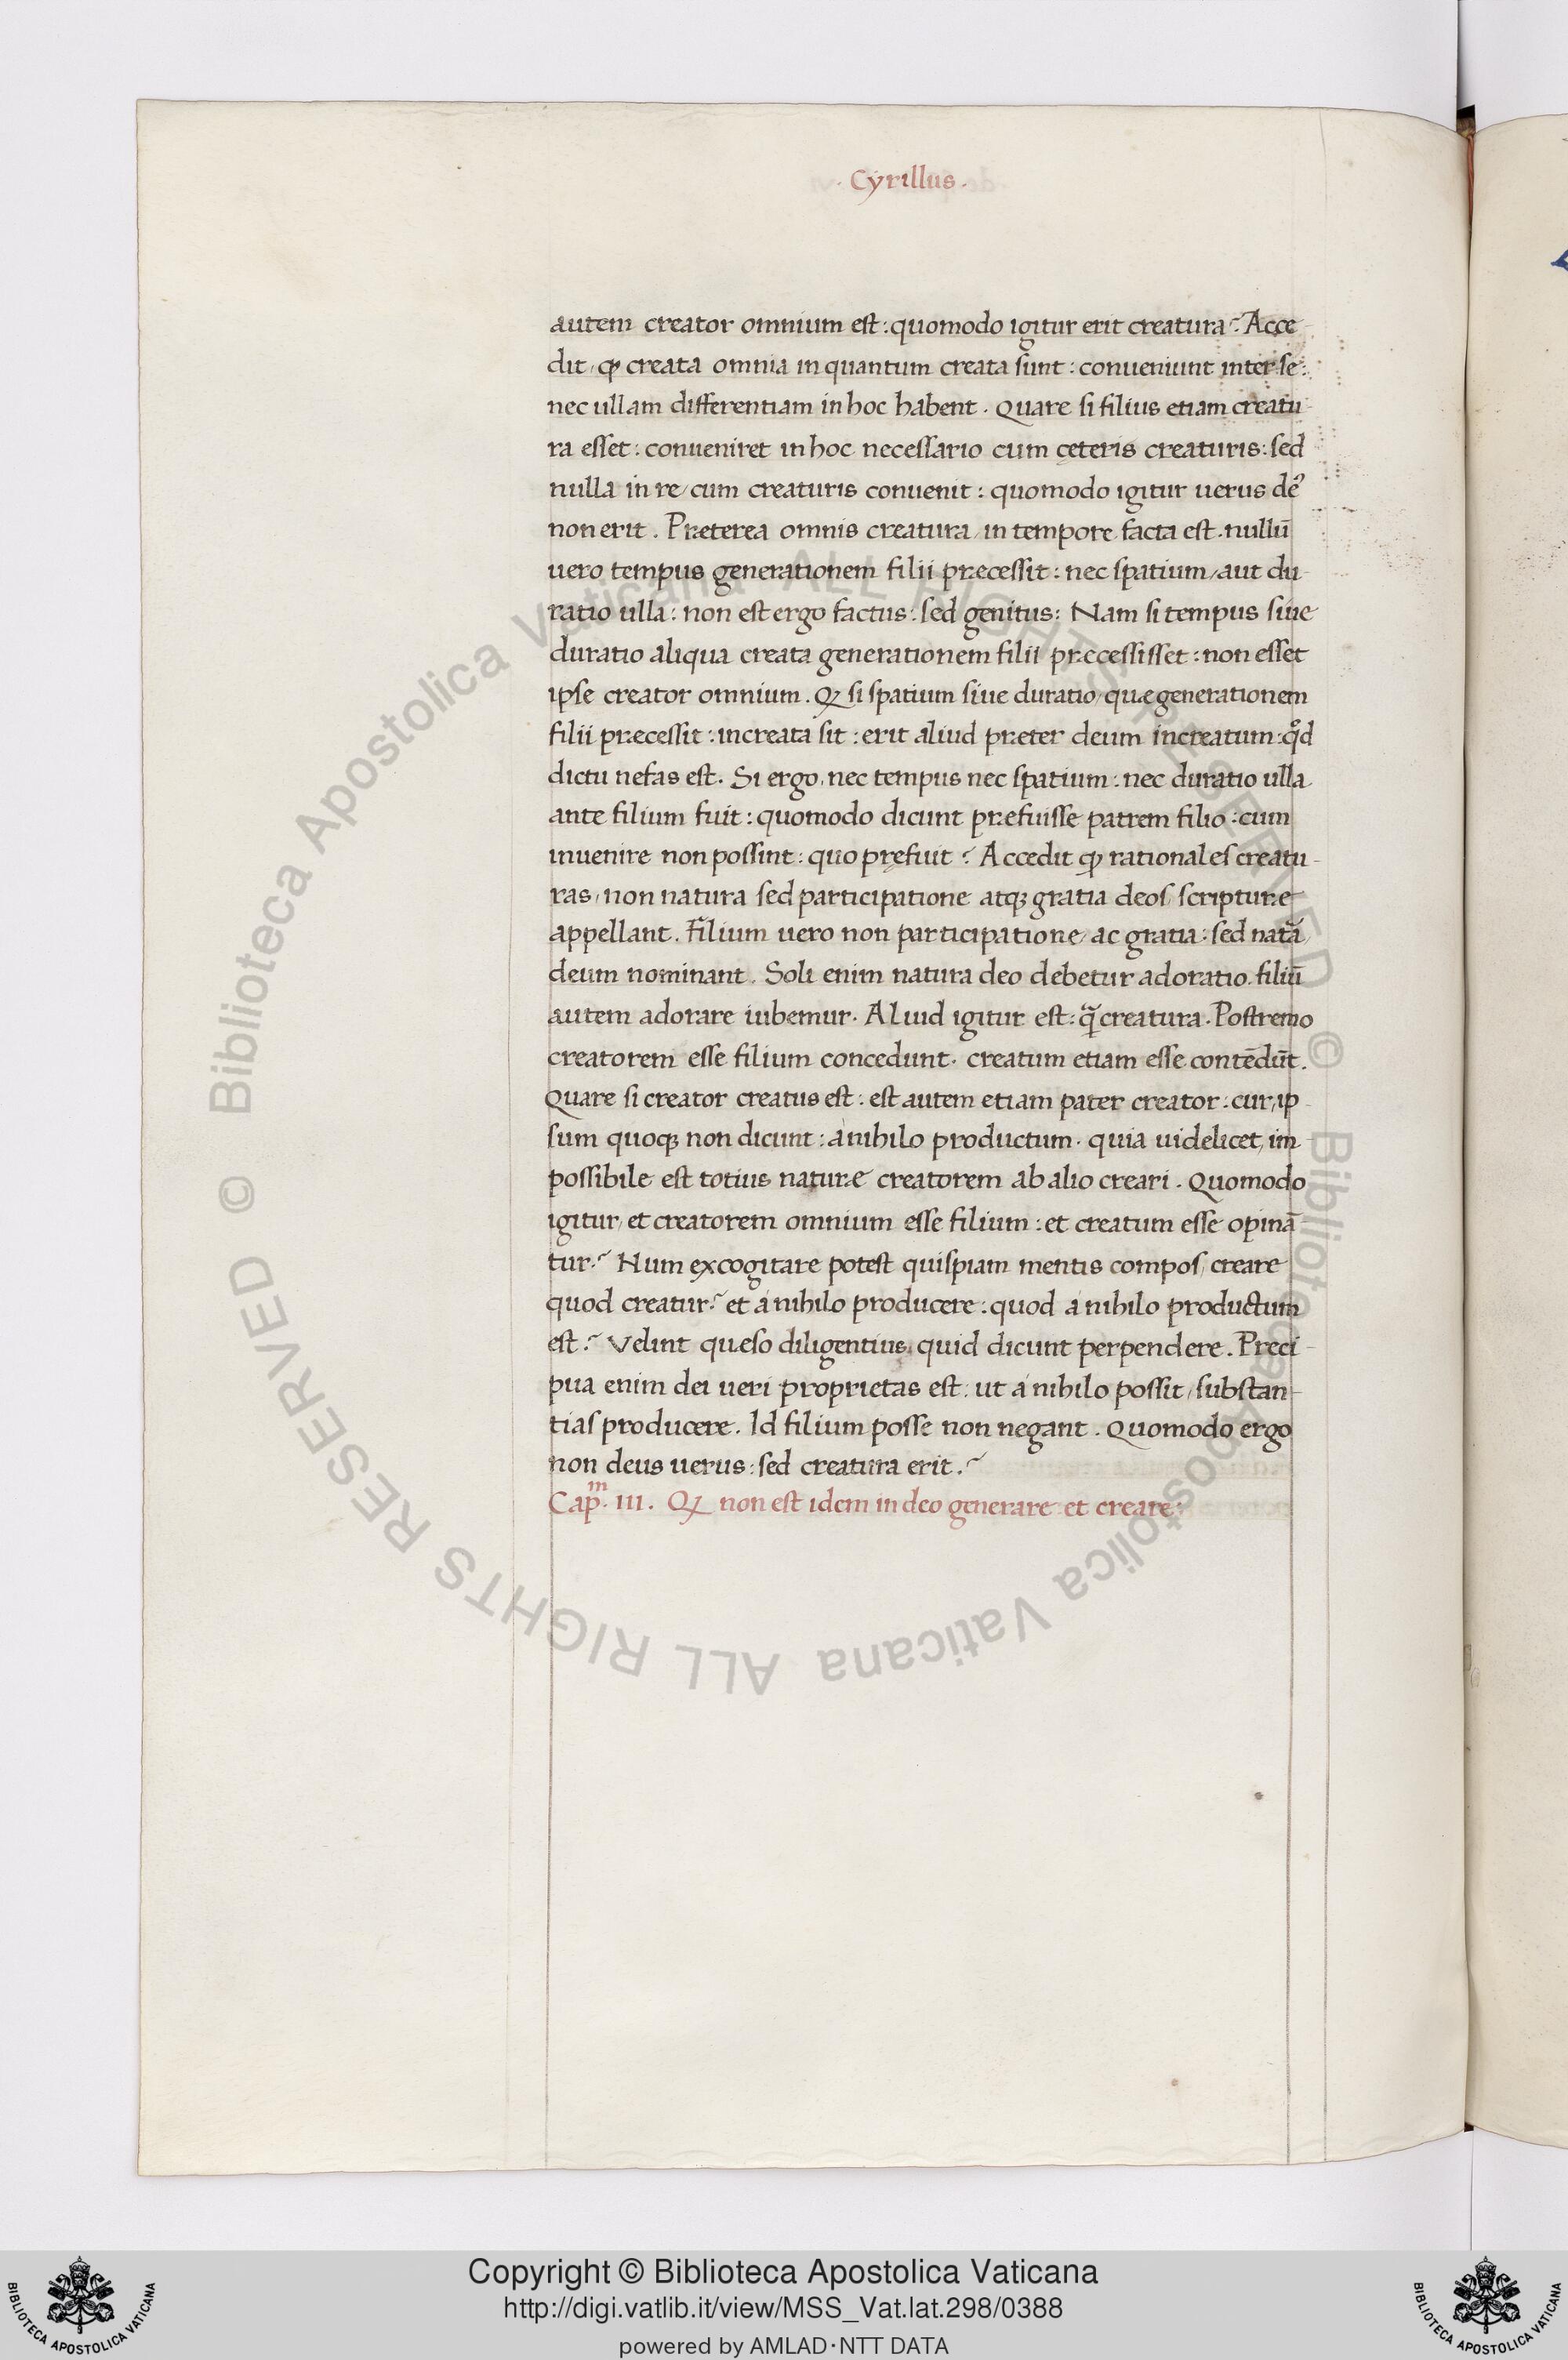 . Cyrillus .
autem creator omnium est : quomodo igitur erit creatura ? Acce
dit, ꝙ creata omnia in quantum creata sunt : conueniunt inter se :
nec ullam differentiam in hoc habent . Quare si filius etiam creatu
ra esset : conueniret in hoc necessario cum ceteris creaturis : sed
nulla in re, cum creaturis conuenit : quomodo igitur uerus de᾽
non erit . Præterea omnis creatura, in tempore facta est . nullū
uero tempus generationem filii præcessit : nec spatium, aut du-
ratio ulla : non est ergo factus : sed genitus : Nam si tempus siue
duratio aliqua creata generationem filii præcessisset : non esset
ipse creator omnium . Q si spatium siue duratio, quæ generationem
filii præcessit : increata sit : erit aliud præter deum increatum : qd
dictu nefas est . Si ergo, nec tempus nec spatium : nec duratio ulla
ante filium fuit : quomodo dicunt præfuisse patrem filio : cum
inuenire non possint : quo prefuit ? Accedit ꝙ rationales creatu-
ras, non natura sed participatione atq; gratia deos, scripturæ
appellant . Filium uero non participatione, ac gratia : sed natā
deum nominant . Soli enim natura deo debetur adoratio . filiū
autem adorare iubemur . Aliud igitur est : q̄ creatura . Postremo
creatorem esse filium concedunt . creatum etiam esse contēdūt .
Quare si creator creatus est : est autem etiam pater creator : cur, ip-
sum quoq; non dicunt : a nihilo productum . quia uidelicet, im-
possibile est totius naturæ creatorem ab alio creari . Quomodo
igitur, et creatorem omnium esse filium : et creatum esse opinā
tur ? Num excogitare potest quispiam mentis compos, creare
quod creatur ? et a nihilo producere : quod a nihilo productum
est ? Velint quæso diligentius, quid dicunt perpendere . Preci-
pua enim dei ueri proprietas est : ut a nihilo possit, substan-
tias producere . Id filium posse non negant . Quomodo ergo
non deus uerus : sed creatura erit . ?
Cap.m III . Q non est idem in deo generare et creare :
© Biblioteca Apostolica Vaticana ALL RIGHTS RESERVED © Biblioteca Apostolica Vaticana ALL RIGHTS RESERVED
Copyright © Biblioteca Apostolica Vaticana
http://digi.vatlib.it/view/MSS_Vat.lat.298/0388
powered by AMLAD·NTT DATA
BIBLIOTECA APOSTOLICA VATICANA
BIBLIOTECA APOSTOLICA VATICANA